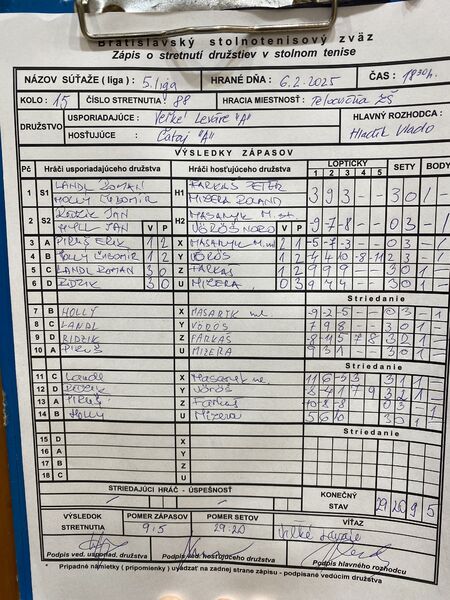 Bratislavský stolnotenisový zväz
Zápis o stretnutí družstiev v stolnom tenise
NÁZOV SÚŤAŽE ( liga ) : 5. liga HRANÉ DŇA : 6.2.2025 ČAS : 1830h.
KOLO : 15 ČÍSLO STRETNUTIA : 88 HRACIA MIESTNOSŤ : Telocvičňa ZŠ
DRUŽSTVO USPORIADAJÚCE : Veľké Leváre "A" HLAVNÝ ROZHODCA :
HOSŤUJÚCE : Čataj "A" Vlado
VÝSLEDKY ZÁPASOV
Pč Hráči usporiadajúceho družstva Hráči hosťujúceho družstva LOPTIČKY SETY BODY
1 2 3 4 5
1 S1 LANDL ROMAN H1 FARKAŠ PETER 3 9 3 - - 3 0 1 -
HOLLY ĽUBOMÍR MIZERA ROLAND
2 S2 RIDZIK JAN H2 MASARYK M. st. -9 -7 -8 - - 0 3 - 1
JAN V P VÖRÖS NORO V P
3 A PIRUŠ ERIK 1 2 X MASARYK M. ml 2 1 -5 -7 -3 - - 0 3 - 1
4 B HOLLY ĽUBOMÍR 1 2 Y VÖRÖS 1 2
5 C LANDL ROMAN 3 0 Z FARKAŠ 1 2 9 9 9 - - 3 0 1 -
6 D RIDZIK 3 0 U MIZERA 0 3 9 7 4 - - 3 0 1 -
Striedanie
7 B HOLLY X MASARIK ml. -9 -2 -5 - - 0 3 - 1
8 C LANDL Y VÖRÖS 7 9 8 - - 3 0 1 -
9 D RIDZIK Z FARKAŠ 3 2 1 -
10 A PIRUŠ U MIZERA 9 3 1 - - 3 0 1 -
Striedanie
11 C Landl X Masarik ml. 3 1 1 -
12 D Ridzik Y Vörös 3 2 1 -
13 A PIRUŠ Z Farkaš 0 3 - 1
14 B Holly U Mizera 5 6 10 3 0 1 -
Striedanie
15 D X
16 A Y
17 B Z
18 C U
STRIEDAJÚCI HRÁČ - ÚSPEŠNOSŤ KONEČNÝ STAV 29 20 9 5
VÝSLEDOK STRETNUTIA POMER ZÁPASOV POMER SETOV VÍŤAZ
9:5 29:20 Veľké Leváre
Podpis ved. usporiad. družstva Podpis ved. hosťujúceho družstva Podpis hlavného rozhodcu
* Prípadné námietky ( pripomienky ) uvádzať na zadnej strane zápisu - podpísané vedúcim družstva